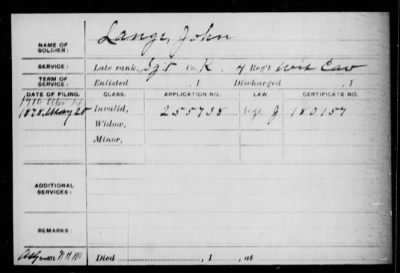 Lange, John
NAME OF SOLDIER:
SERVICE: Late rank, Sgt Co. K, 4 Reg't Wis Cav
TERM OF SERVICE: Enlisted , 1 Discharged , 1
DATE OF FILING. CLASS. APPLICATION NO. LAW. CERTIFICATE NO.
1910
1878 May 28 Invalid, 255738 J 183157
Widow,
Minor,
ADDITIONAL SERVICES:
REMARKS:
Died , 1 , at